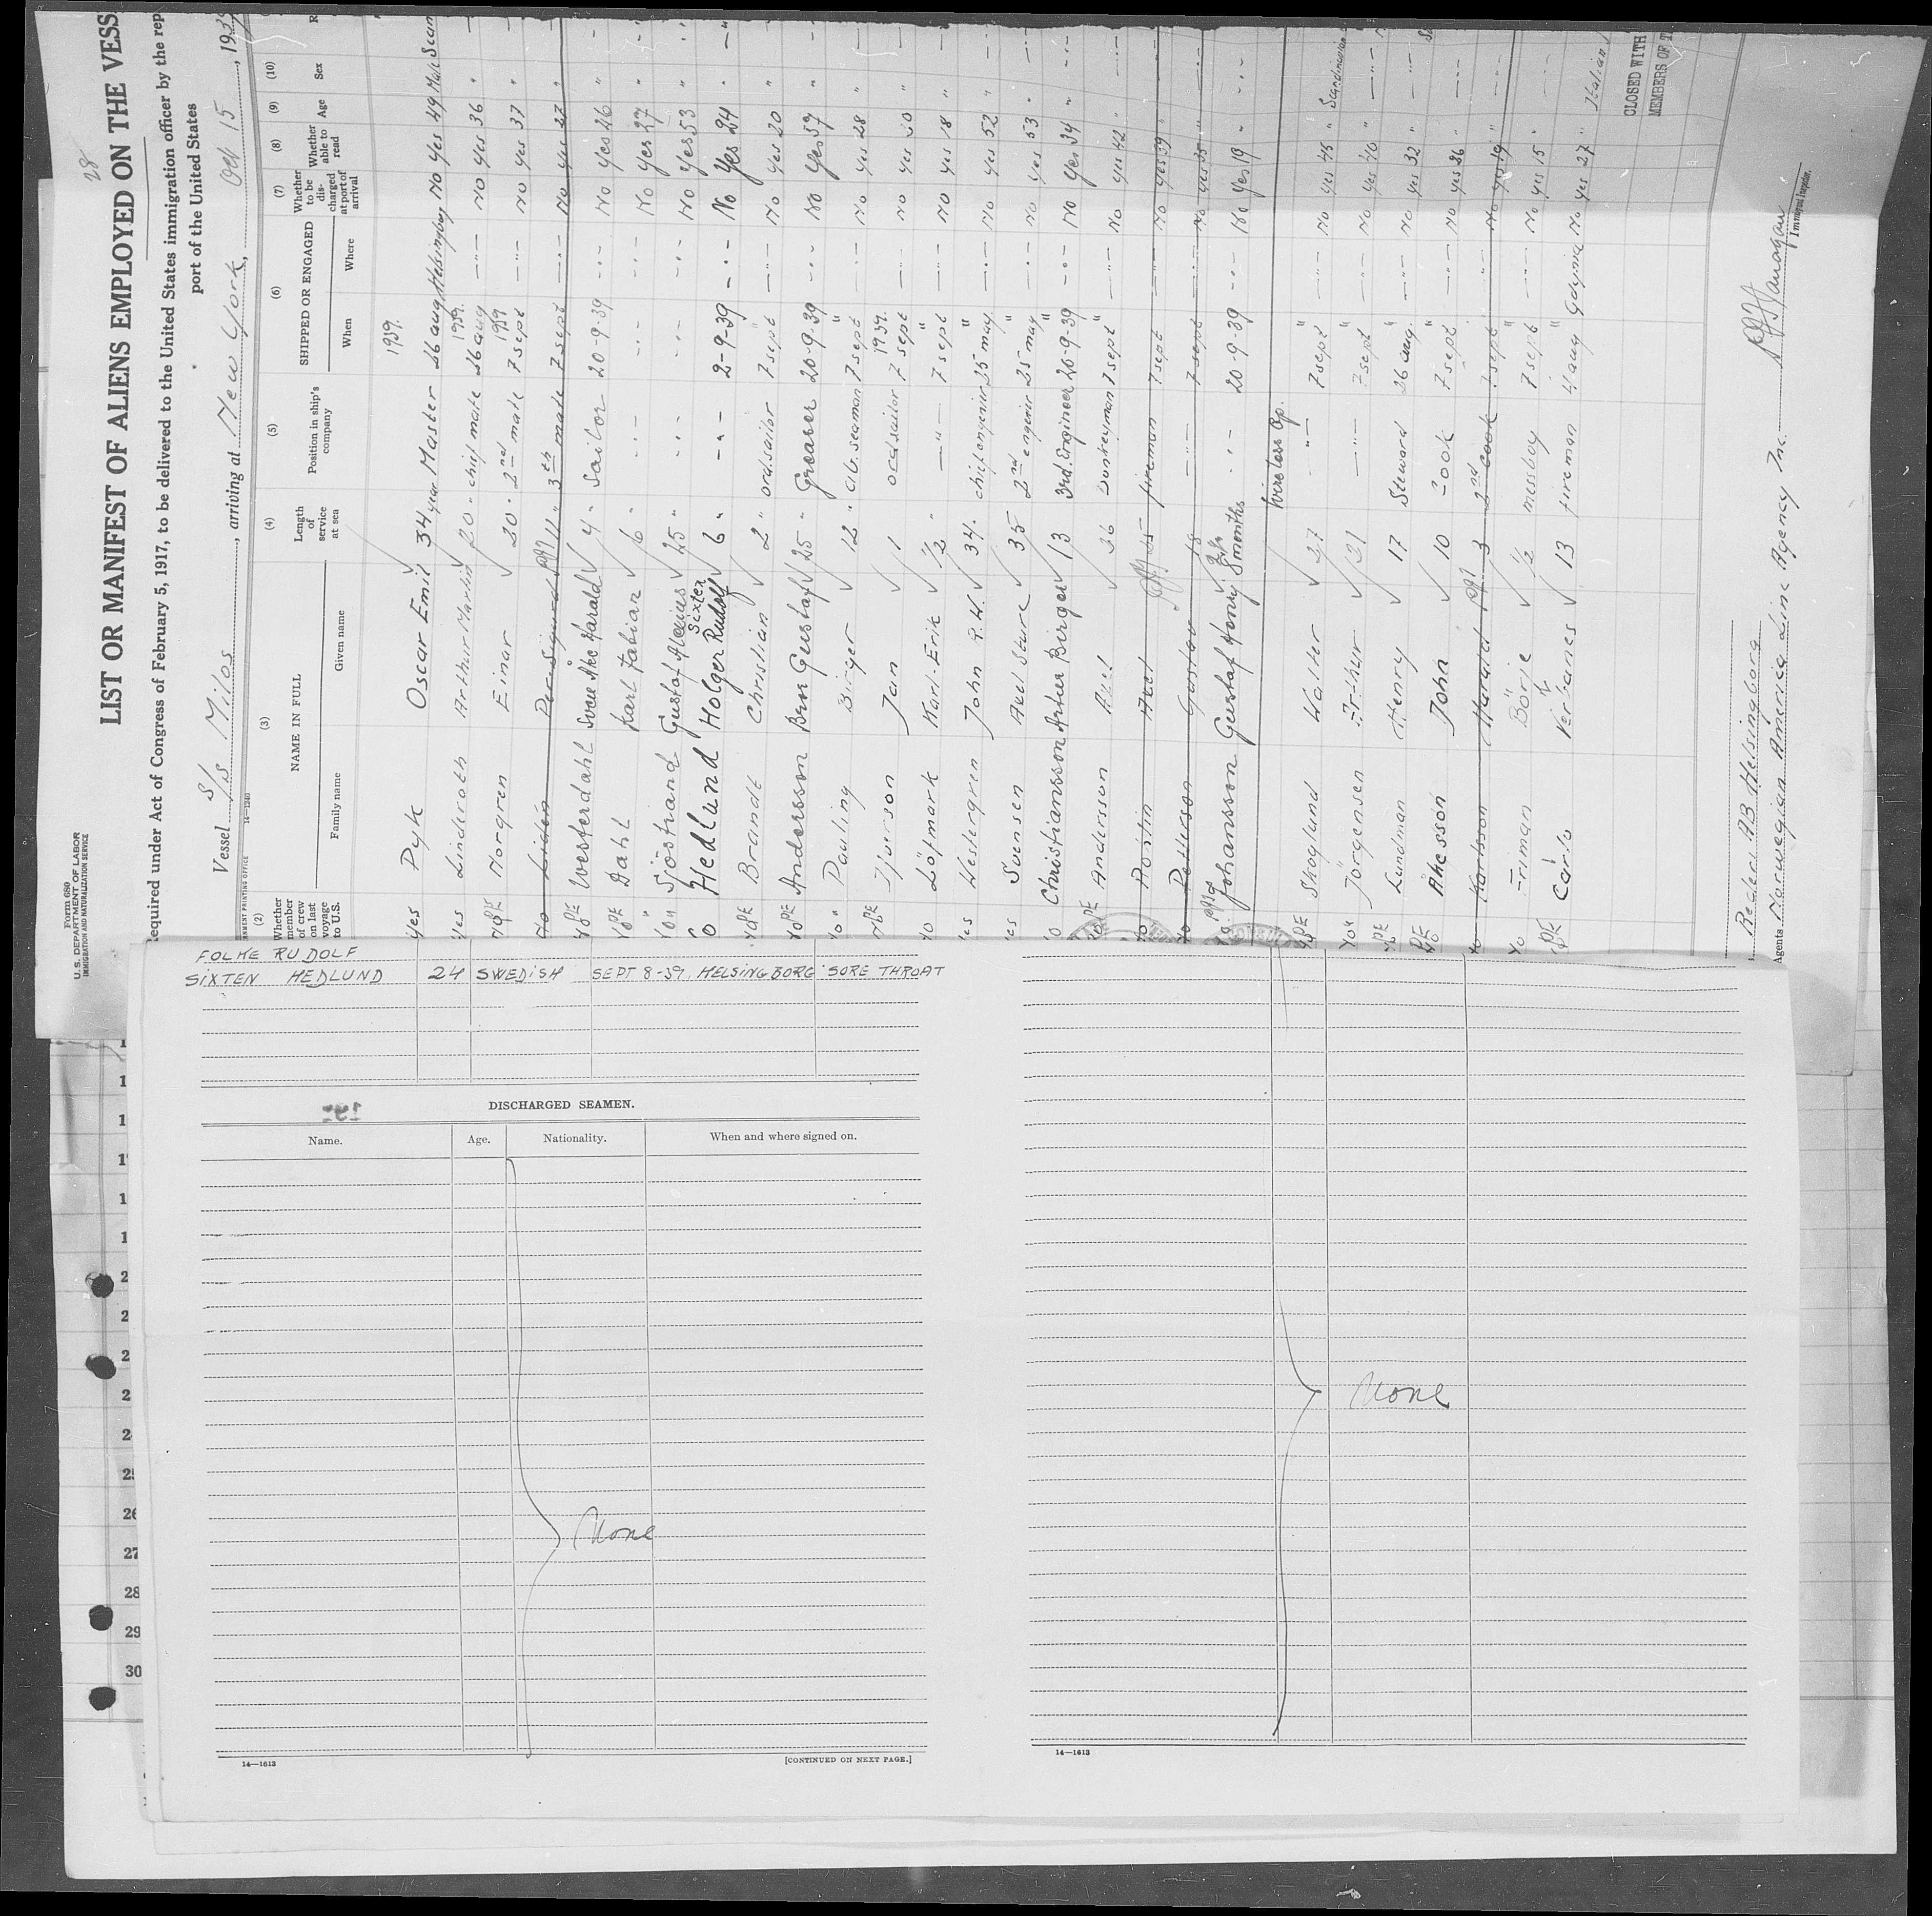 Form 680
U. S. DEPARTMENT OF LABOR
IMMIGRATION AND NATURALIZATION SERVICE
28
LIST OR MANIFEST OF ALIENS EMPLOYED ON THE VESS
Required under Act of Congress of February 5, 1917, to be delivered to the United States immigration officer by the rep
port of the United States
Vessel S/S Milos, arriving at New York, Oct 15, 193
14-1240
(2) (3) (4) (5) (6) (7) (8) (9) (10)
Whether member of crew on last voyage to U.S. NAME IN FULL Family name Given name Length of service at sea Position in ship's company SHIPPED OR ENGAGED When Where Whether to be discharged at port of arrival Whether able to read Age Sex
1939.
yes Pyk Oscar Emil 34 year Master 26 aug Helsingborg No yes 49 Male
yes Lindroth Arthur Martin 20 " chief mate 26 aug 1939 —"— No yes 36 "
No Norgren Einar 20 " 2nd mate 7 sept 1939 —"— No yes 37 "
No Lidén Per Sigurd 11 " 3th mate 7 sept —"— No yes 27 "
No Westerdahl Sven Åke Harald 4 " Sailor 20-9-39 —"— No yes 26 "
Dahl Karl Fabian 6 " —"— —"— —"— No yes 27 "
Sjöstrand Gustaf Alexius 25 " —"— —"— —"— No yes 53 "
Hedlund Holger Rudolf Sixten 6 " —"— 2-9-39 —"— No yes 24 "
Brandt Christian 2 " ord.sailor 7 sept —"— No yes 20 "
No Andersson Bror Gustaf 25 " Greaser 20-9-39 —"— No yes 37 "
No " Pauling Birger 12 " ab.seaman 7 sept —"— No yes 28 "
Iverson Jan 1 ord sailor 7 sept 1939. —"— No yes 20 "
No Löfmark Karl-Erik ½ " —"— 7 sept —"— No yes 18 "
yes Westergren John R.W. 34 " chief engenier 25 may —"— No yes 52 "
yes Svensen Axel Sture 35 2nd engenier 25 may —"— No yes 53 "
No Christiansson Artur Birger 13 3rd. Engineer 20-9-39 —"— No yes 34 "
No Andersson Axel 26 Donkeyman 7 sept —"— No yes 42 "
No Axel fireman 7 sept —"— No yes 39 "
No Petterson Gustav 18 —"— 7 sept —"— No yes 35 "
No Johansson Gustaf Henry 8 months —"— 20-9-39 —"— No yes 19 "
Wireless Op.
Skoglund Walter 27 —"— 7 sept —"— No yes 45 " Scandinavian
Jörgensen Arthur 21 —"— 7 sept —"— No yes 40 "
Lundman Henry 17 Steward 26 aug. —"— No yes 32 "
Åkesson John 10 Cook 7 sept —"— No yes 26 "
No Karlsson Harald 3 2nd cook 7 sept —"— No yes 19 "
No Friman Börje ½ messboy 7 sept —"— No yes 15 "
Carlo Verbanes 13 fireman 4 aug Gdynia No yes 27 " Italian
CLOSED WITH
MEMBERS OF T
Rederi AB Helsingborg
Agents Norwegian America Line Agency Inc.
Immigrant Inspector.
FOLKE RUDOLF
SIXTEN HEDLUND 24 SWEDISH SEPT 8-39, HELSINGBORG SORE THROAT
DISCHARGED SEAMEN.
Name. Age. Nationality. When and where signed on.
None
None
14—1613
[CONTINUED ON NEXT PAGE.]
14—1613
25
26
27
28
29
30